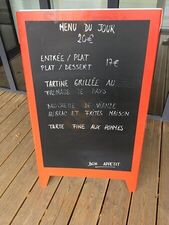 MENU DU JOUR
20€
ENTRÉE / PLAT
PLAT / DESSERT 17€
TARTINE GRILLÉE AU
FROMAGE DE PAYS
BROCHETTE DE VIANDE
AUBRAC ET FRITES MAISON
TARTE FINE AUX POMMES
BON APPETIT